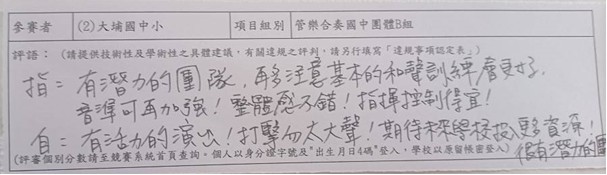 參賽者 (2)大埔國中小 項目組別 管樂合奏國中團體B組
評語：(請提供技術性及學術性之具體建議，有關違規之評判，請另行填寫「違規事項認定表」)
指：有潛力的團隊，再多注意基本的和聲訓練會更好，
音準可再加強！整體感不錯！指揮控制得宜！
自：有活力的演出！打擊勿太大聲！期待未來學校投入更多資源！
很有潛力的團
(評審個別分數請至競賽系統首頁查詢。個人以身分證字號及"出生月日4碼"登入，學校以原留帳密登入)